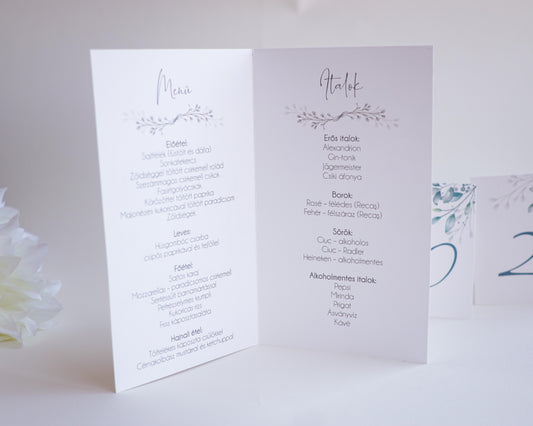 Menü
Előétel:
Sajttekek (füstölt és dália)
Sonkatekercs
Zöldséggel töltött csirkemell rolád
Szezámmagos csirkemell csíkok
Fasírtgolyócskák
Körözöttel töltött paprika
Majonézes kukoricával töltött paradicsom
Zöldségek
Leves:
Húsgombóc csorba
csípős paprikával és tejföllel
Főétel:
Sajtos karaj
Mozzarellás - paradicsomos csirkemell
Sertéssült barnamártással
Petrezselymes krumpli
Kukoricás rizs
Friss káposztasaláta
Hajnali étel:
Töltelékes káposzta csülökkel
Cérnakolbász mustárral és ketchuppal
Italok
Erős italok:
Alexandrion
Gin-tonik
Jägermeister
Csíki áfonya
Borok:
Rosé – félédes (Recaș)
Fehér – félszáraz (Recaș)
Sörök:
Ciuc – alkoholos
Ciuc – Radler
Heineken – alkoholmentes
Alkoholmentes italok:
Pepsi
Mirinda
Prigat
Ásványvíz
Kávé
2